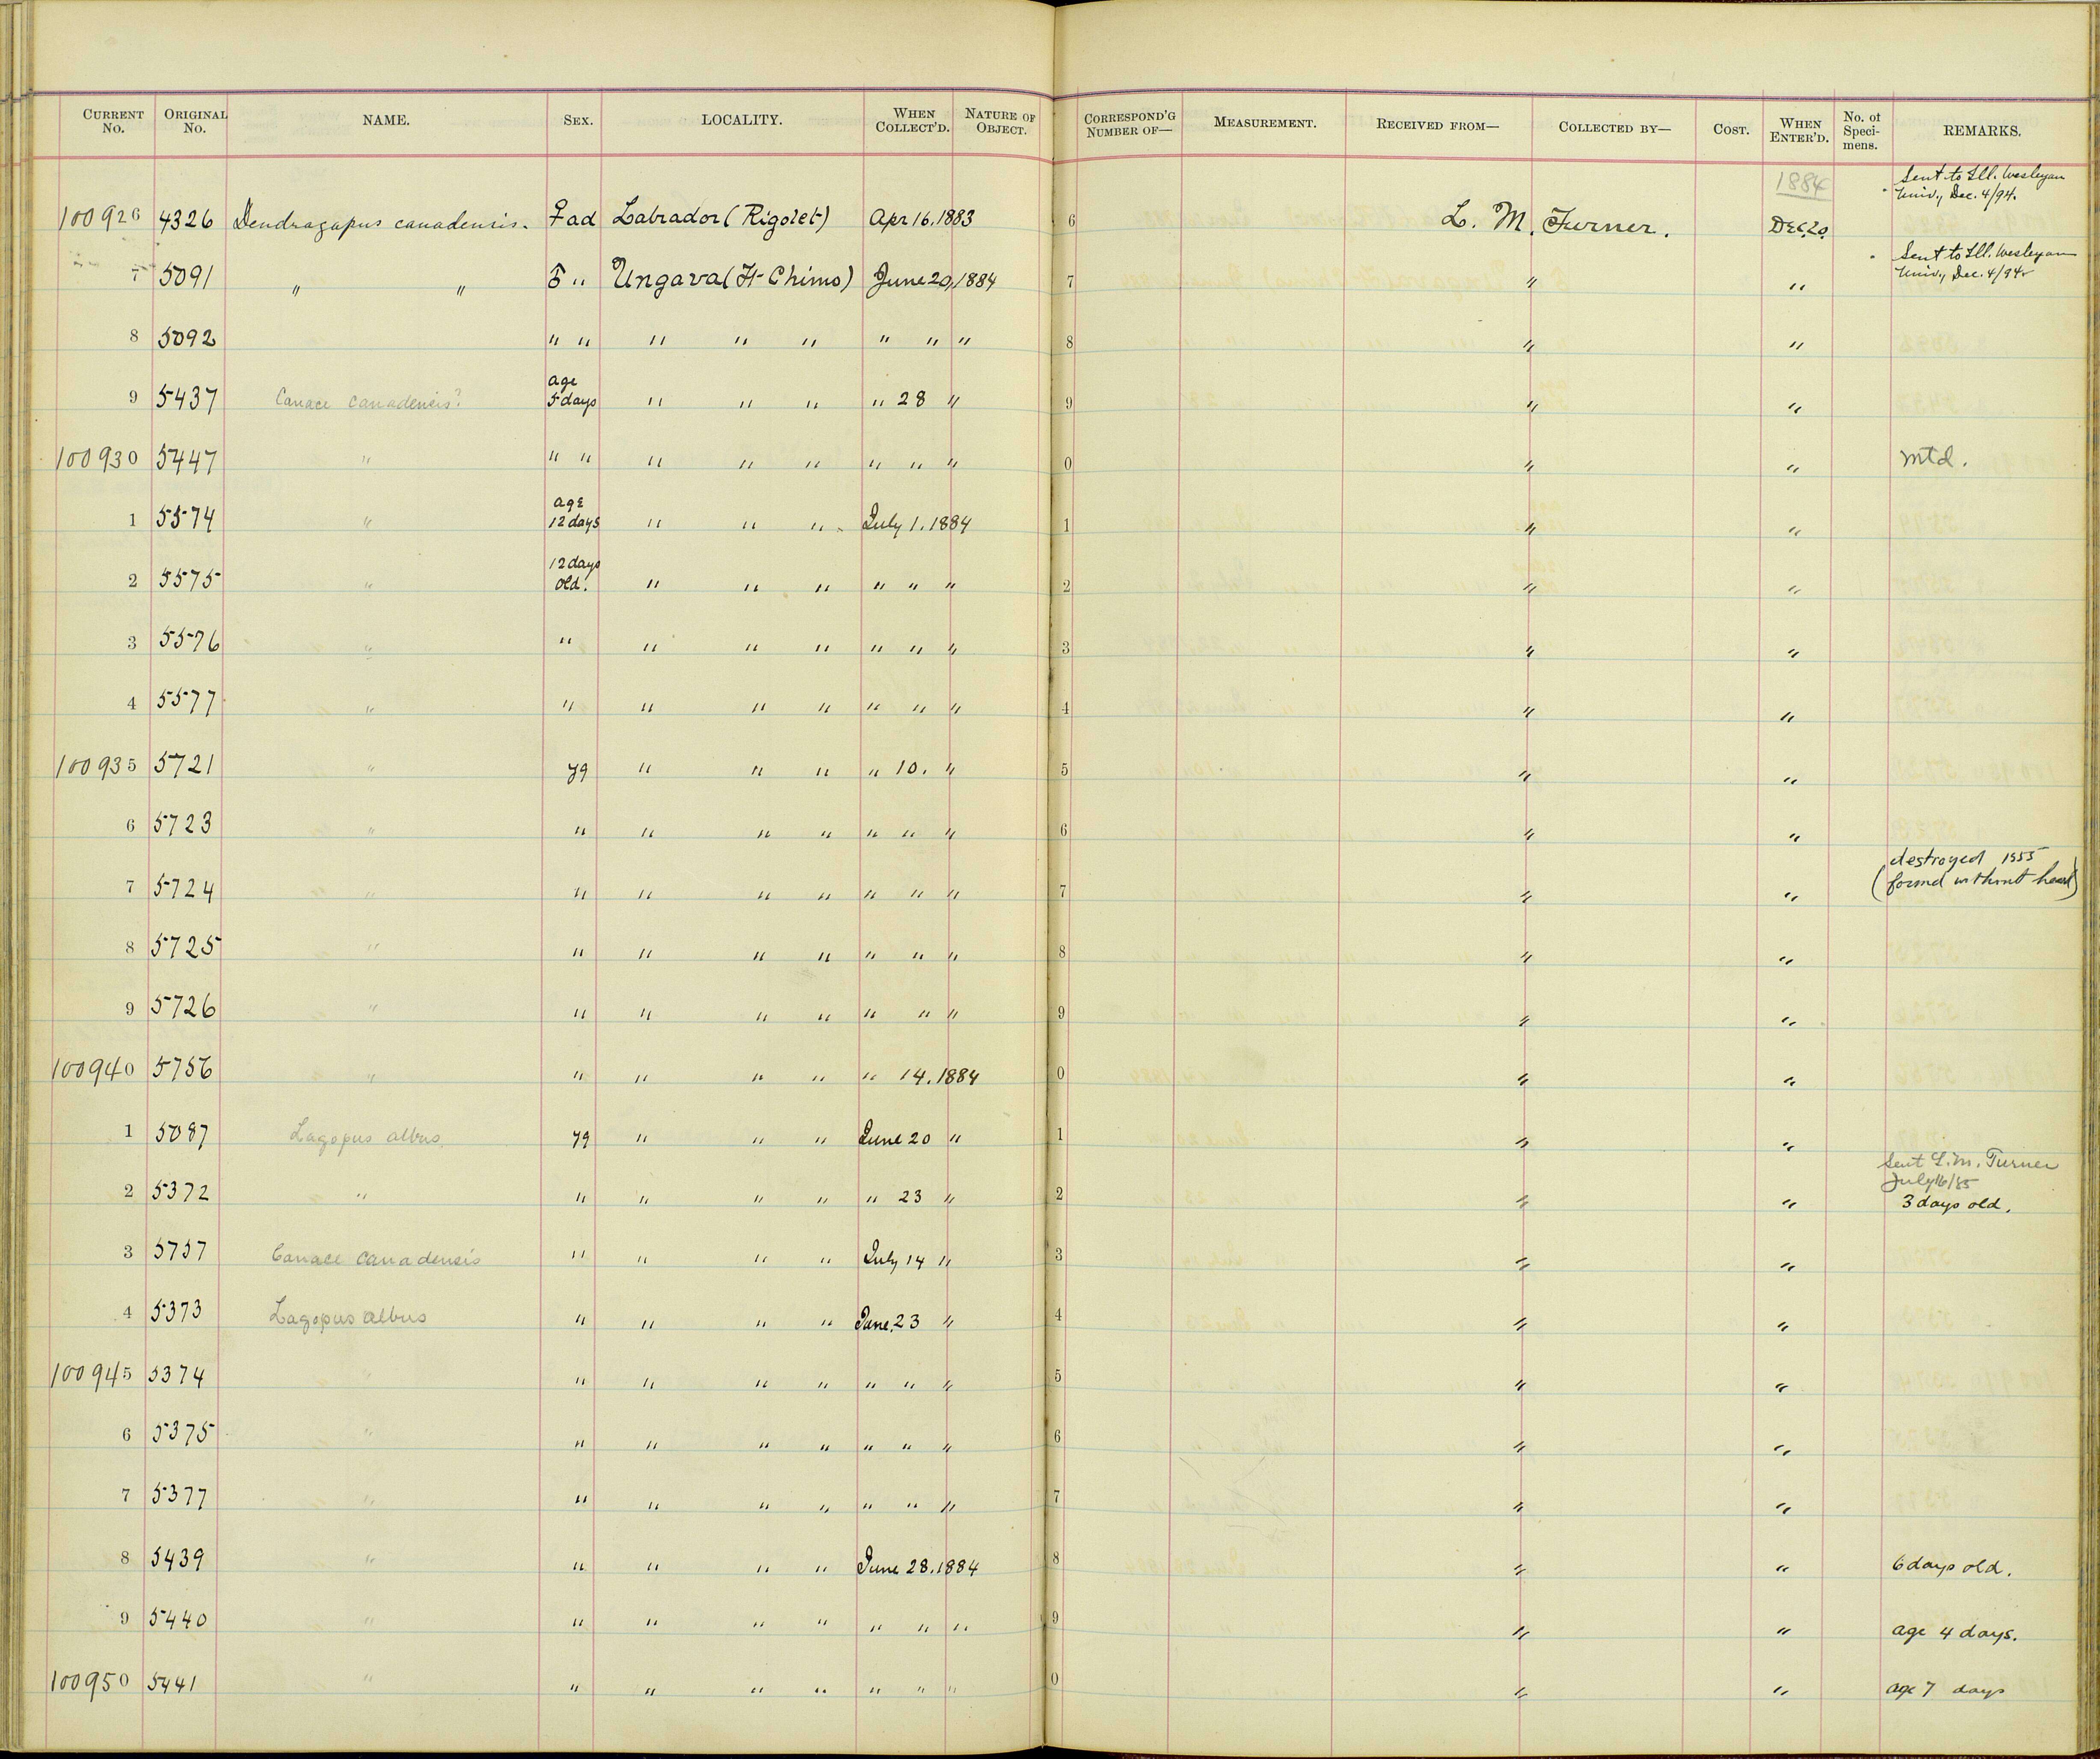 CURRENT No. ORIGINAL No. NAME. SEX. LOCALITY. WHEN COLLECT'D. NATURE OF OBJECT. CORRESPOND'G NUMBER OF— MEASUREMENT. RECEIVED FROM— COLLECTED BY— COST. WHEN ENTER'D. No. of Speci-mens. REMARKS.
1884 Sent to Ill. Wesleyan
Univ., Dec. 4/94.
100926 4326 Dendragapus canadensis. ♀ ad Labrador (Rigolet) Apr 16. 1883 6 L. M. Turner. Dec. 20.
Sent to Ill. Wesleyan
7 5091 " " " Ungava (Ft Chimo) June 20, 1884 7 " " Univ., Dec. 4/94
8 5092 " " " " " " " " 8 " "
age
9 5437 Canace canadensis? 5 days " " " " 28 " 9 " "
100930 5447 " " " " " " " " " 0 " " Mtd.
age
1 5574 " 12 days " " " July 1. 1884 1 " "
12 days
2 5575 " old. " " " " " " 2 " "
3 5576 " " " " " " " " 3 " "
4 5577 " " " " " " " " 4 " "
100935 5721 " yg " " " " 10. " 5 " "
6 5723 " " " " " " " " 6 " "
destroyed 1955
7 5724 " " " " " " " " 7 " " (found without head)
8 5725 " " " " " " " " 8 " "
9 5726 " " " " " " " " 9 " "
100940 5756 " " " " " " 14. 1884 0 " "
1 5087 Lagopus albus yg " " " June 20 " 1 " "
Sent L. M. Turner
July 16/85
2 5372 " " " " " " 23 " 2 " " 3 days old.
3 5757 Canace canadensis " " " " July 14 " 3 " "
4 5373 Lagopus albus " " " " June. 23 " 4 " "
100945 5374 " " " " " " " " 5 " "
6 5375 " " " " " " " " 6 " "
7 5377 " " " " " " " " 7 " "
8 5439 " " " " " June 28. 1884 8 " " 6 days old.
9 5440 " " " " " " " " 9 " " age 4 days.
100950 5441 " " " " " " " " 0 " " age 7 days